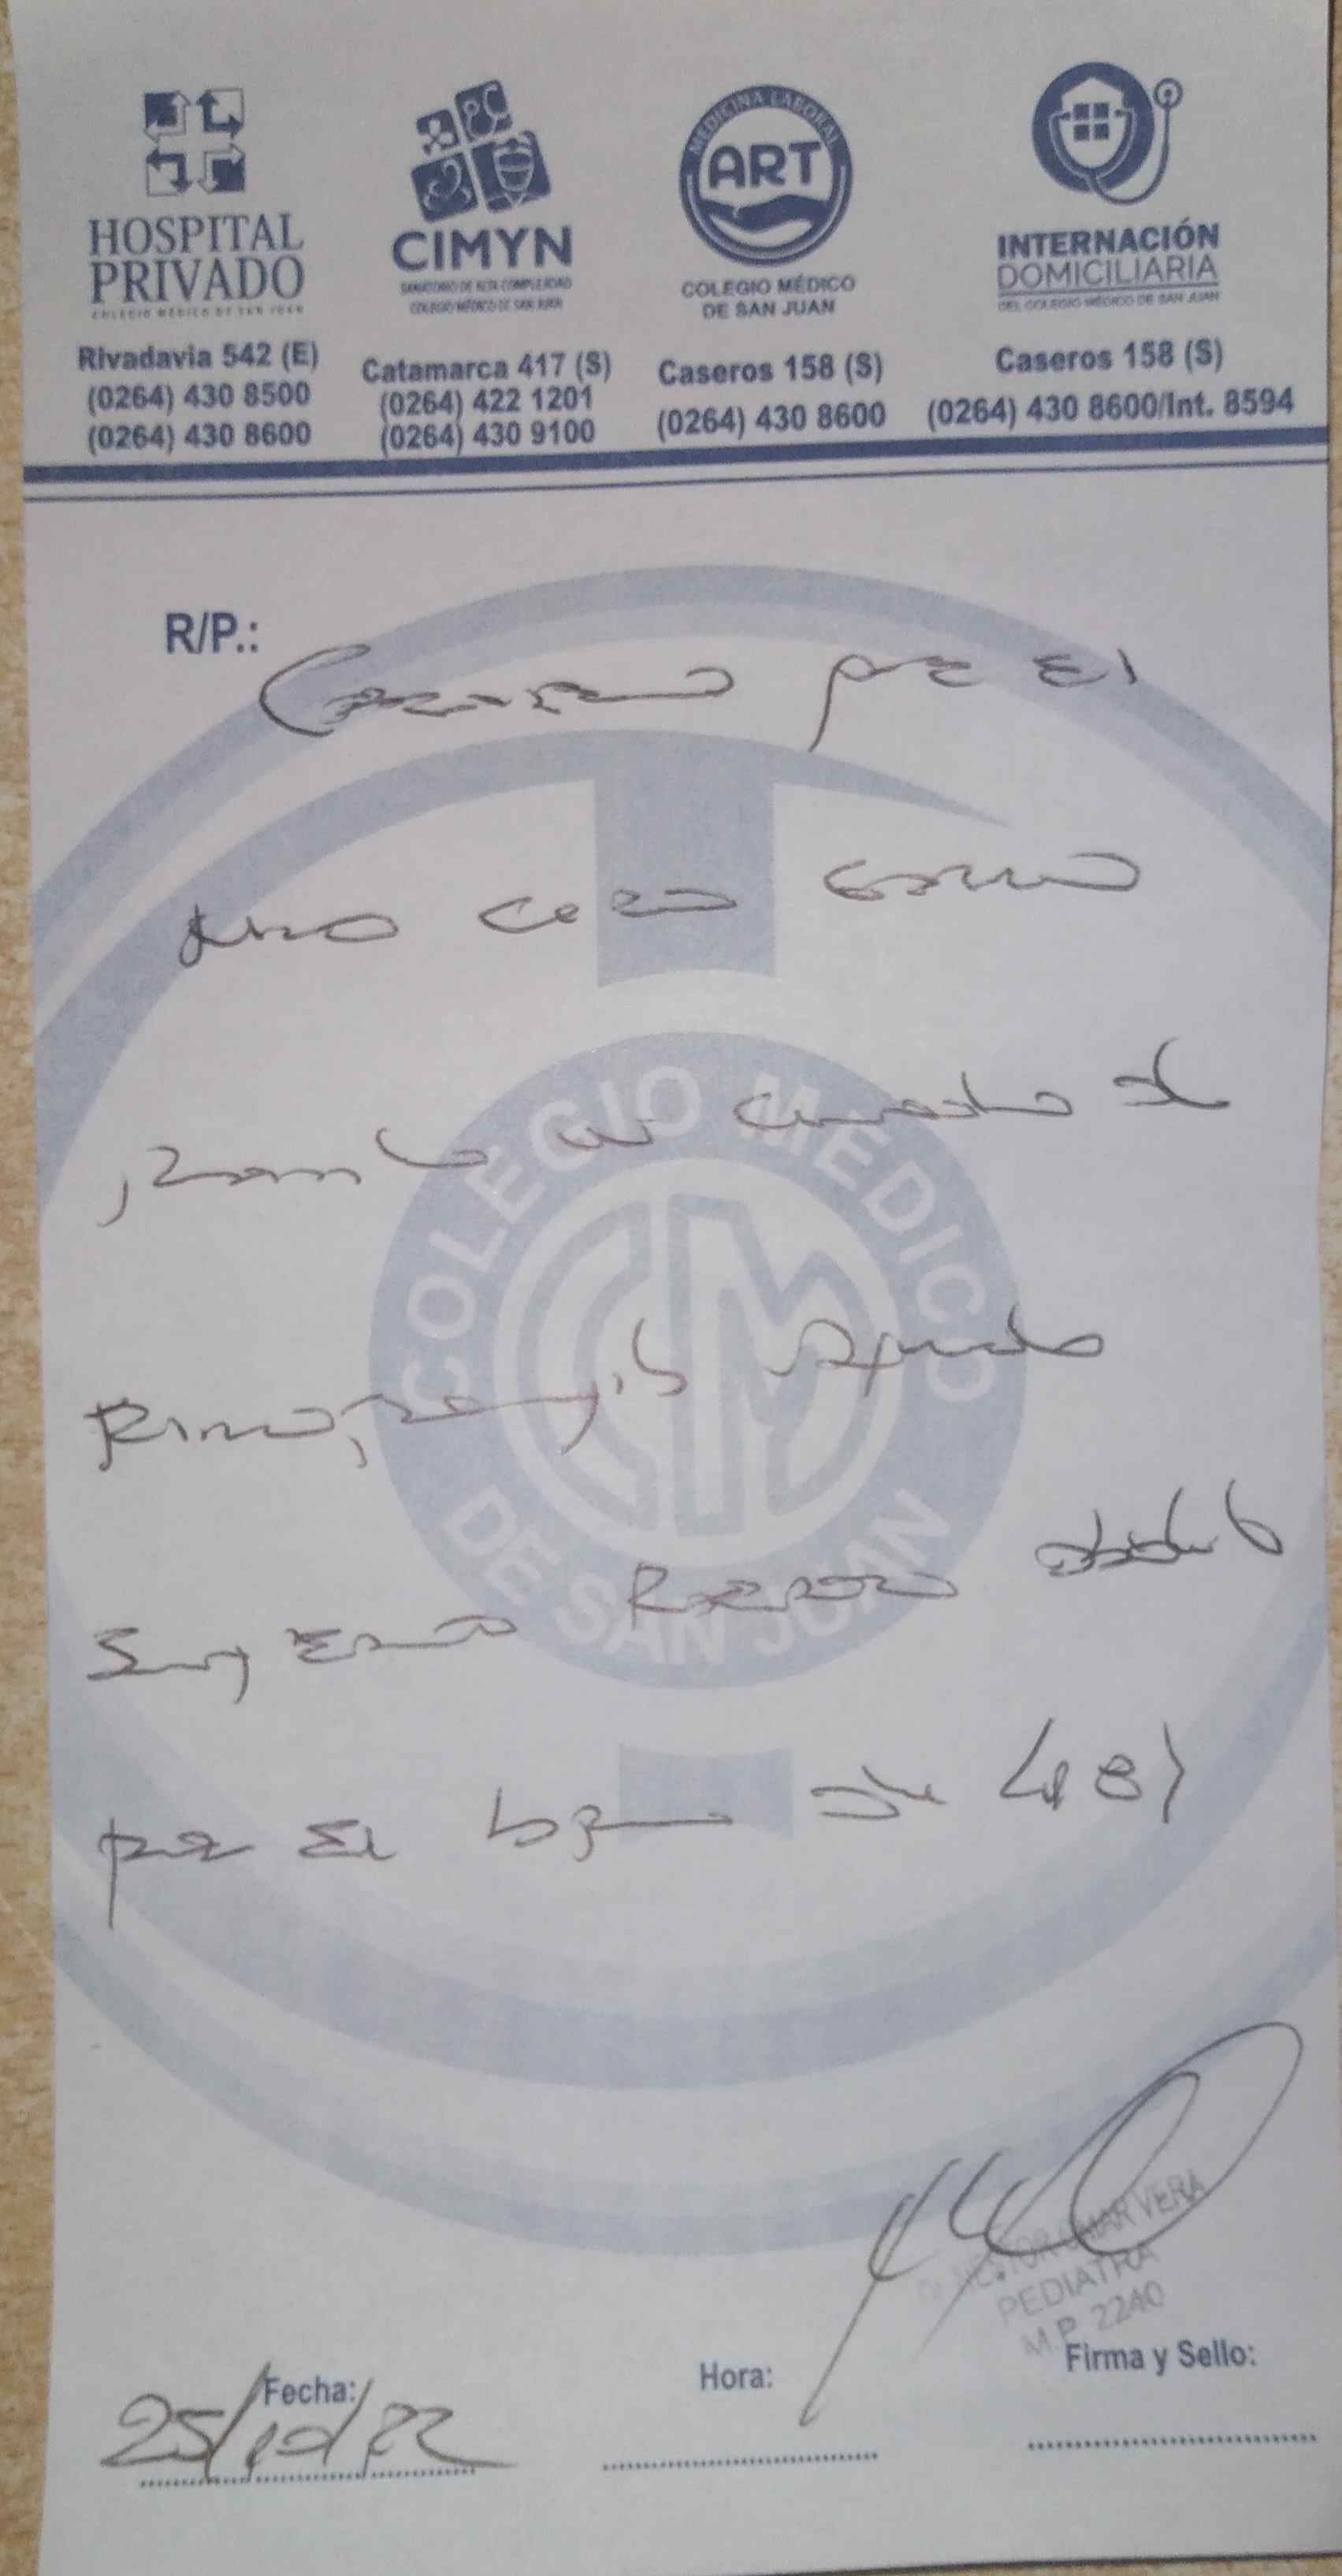 HOSPITAL
PRIVADO
COLEGIO MÉDICO DE SAN JUAN
Rivadavia 542 (E)
(0264) 430 8500
(0264) 430 8600
CIMYN
SANATORIO DE ALTA COMPLEJIDAD
COLEGIO MÉDICO DE SAN JUAN
Catamarca 417 (S)
(0264) 422 1201
(0264) 430 9100
MEDICINA LABORAL
ART
COLEGIO MÉDICO
DE SAN JUAN
Caseros 158 (S)
(0264) 430 8600
INTERNACIÓN
DOMICILIARIA
DEL COLEGIO MÉDICO DE SAN JUAN
Caseros 158 (S)
(0264) 430 8600/Int. 8594
R/P.:
Certifico que el
niño
presenta un cuadro de
Rinofaringitis aguda
Sugiero Reposo
por el de 48
COLEGIO MEDICO
CM
DE SAN JUAN
Dr. NESTOR OMAR VERA
PEDIATRA
M.P. 2240
Fecha:
25/10/22
Hora:
Firma y Sello: